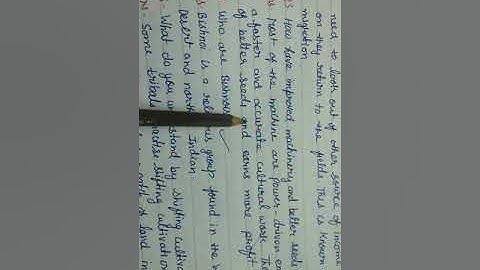 need to look out of other source of incom
on they return to the fields This is known
migration.
How have improved machinery and better seeds
Most of the machine are power-driven en
a faster and accurate cultural work. Th
of better seeds and earns more profit.
Who are Bishnou
Bishnoi is a religious group found in the
Desert and north Indian.
What do you understand by shifting cultiva
Some tribals practise shifting cultivation
of land in